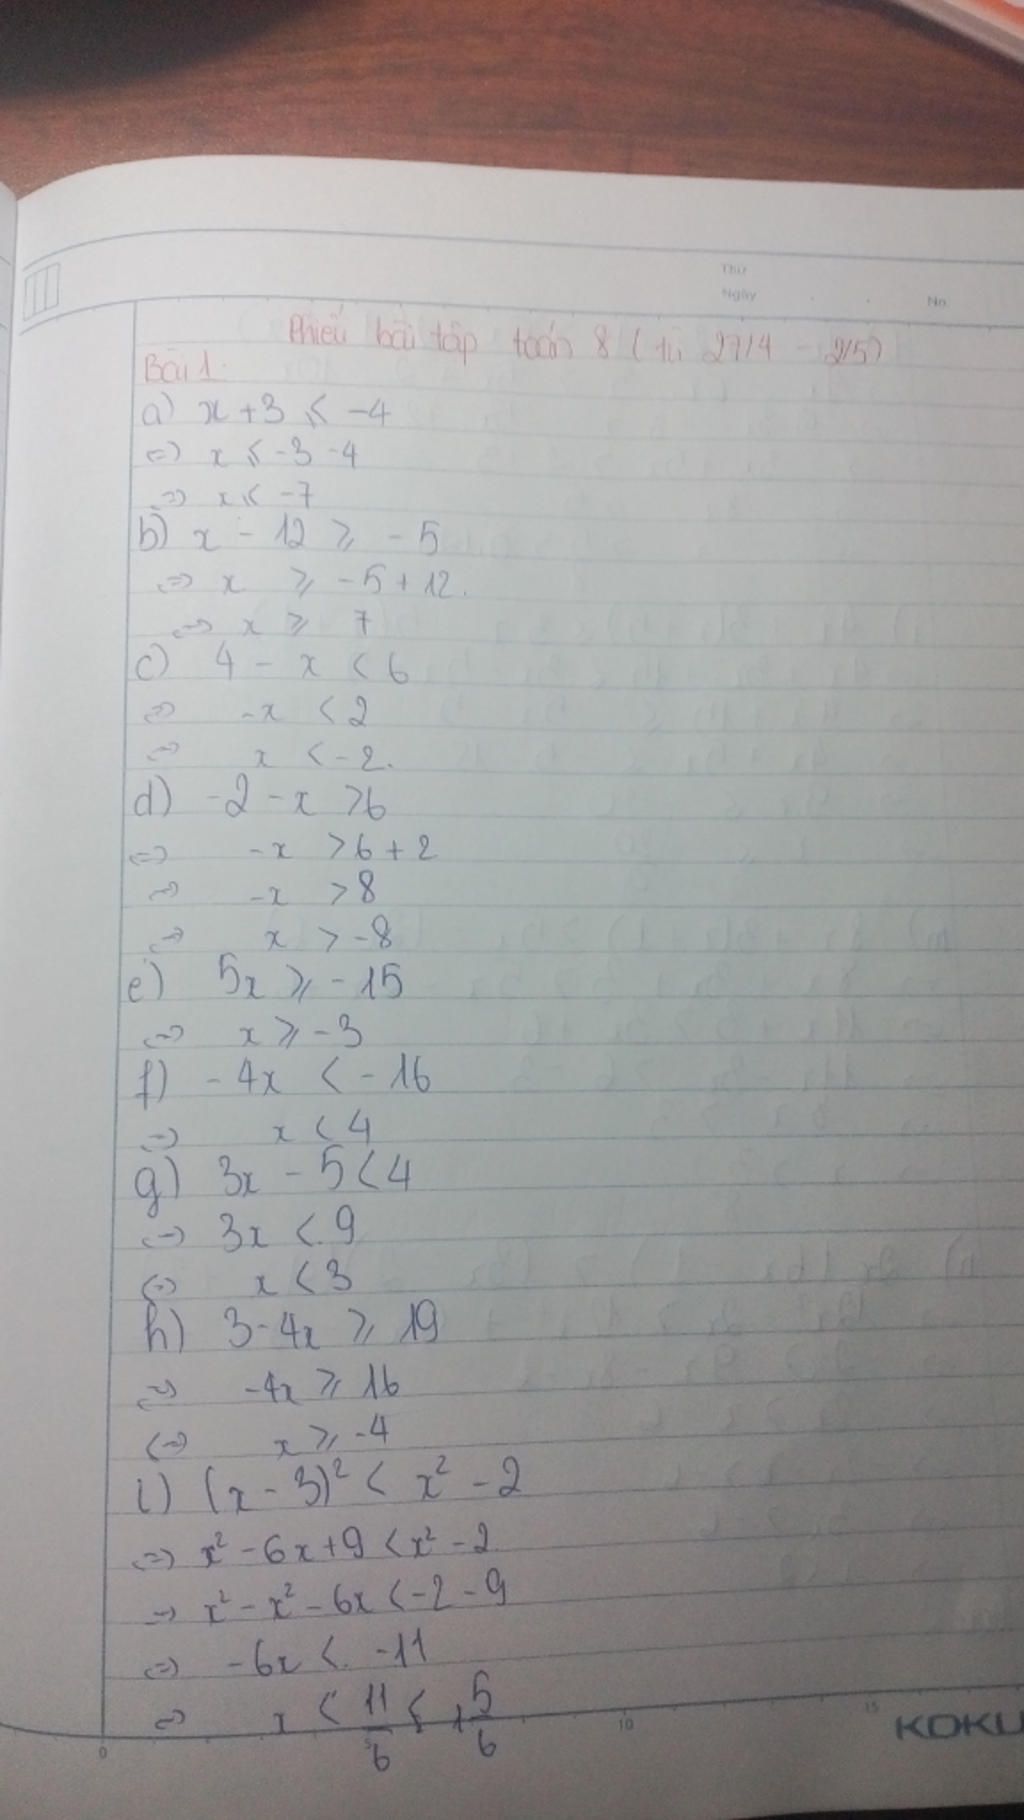 Thứ
Ngày . . No.
Phiếu bài tập toán 8 ( từ 27/4 - 2/5)
Bài 1.
a) x + 3 ⩽ -4
⇔ x ⩽ -3 -4
⇔ x ⩽ -7
b) x - 12 ⩾ -5
⇔ x ⩾ -5 + 12.
⇔ x ⩾ 7
c) 4 - x < 6
⇔ -x < 2
⇔ x < -2.
d) -2 - x > 6
⇔ -x > 6 + 2
⇔ -x > 8
⇔ x > -8
e) 5x ⩾ -15
⇔ x ⩾ -3
f) -4x < -16
⇔ x < 4
g) 3x - 5 < 4
⇔ 3x < 9
⇔ x < 3
h) 3 - 4x ⩾ 19
⇔ -4x ⩾ 16
⇔ x ⩾ -4
i) (x - 3)² < x² - 2
⇔ x² - 6x + 9 < x² - 2
⇔ x² - x² - 6x < -2 - 9
⇔ -6x < -11
⇔ x < 11/6 < 1 5/6
0 5 10 15 KOKU